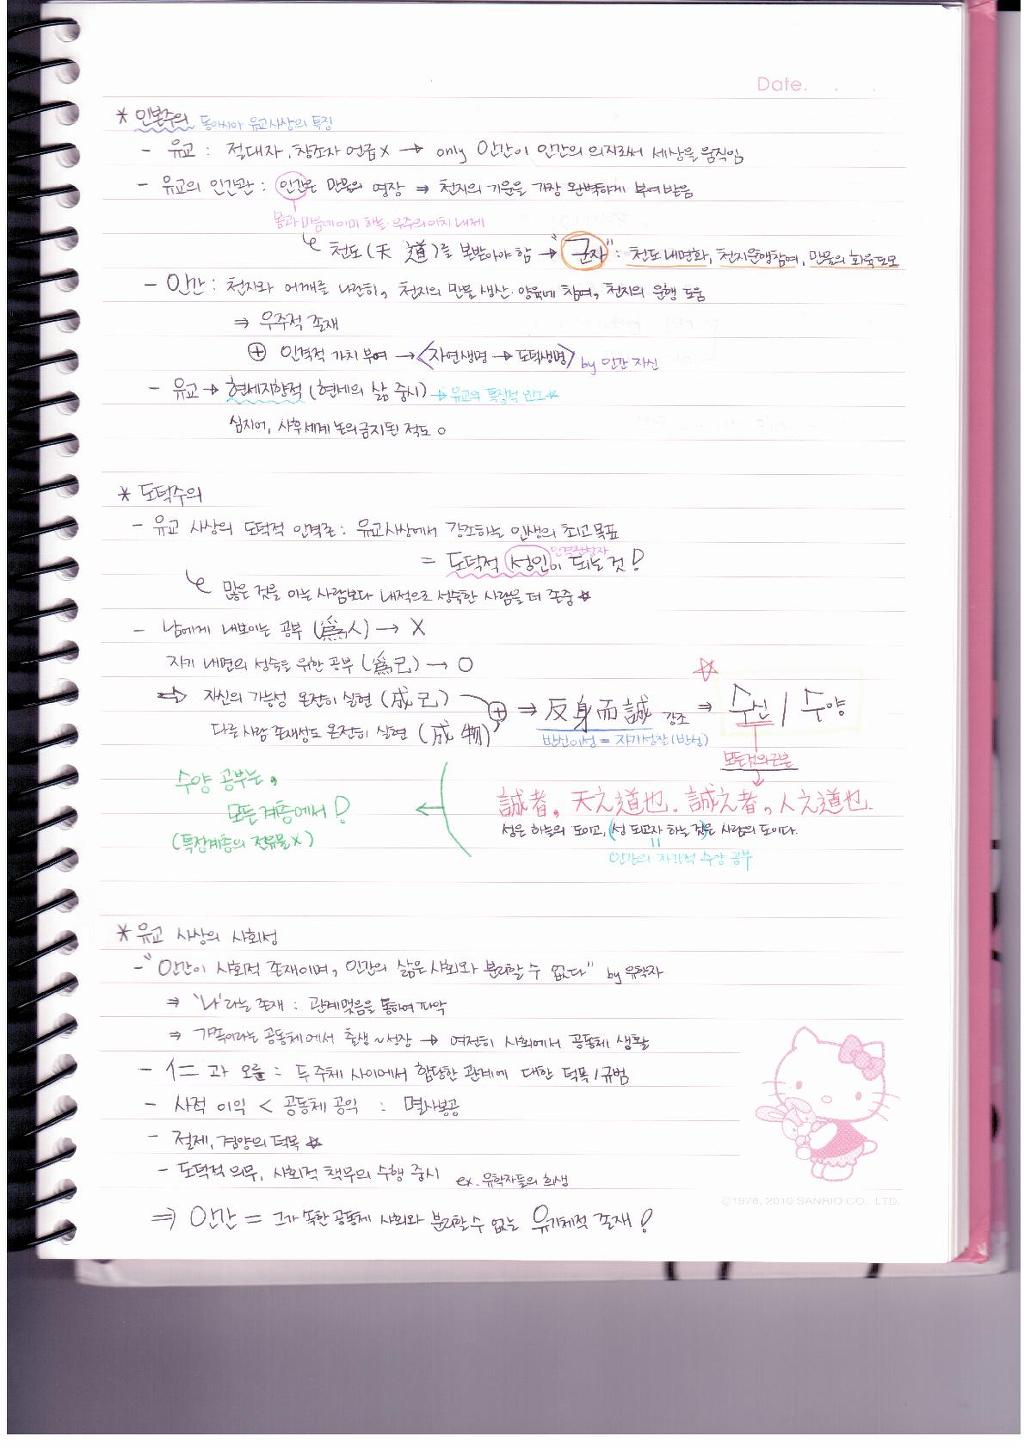 Date. . .
* 인본주의 동아시아 유교사상의 특징
- 유교 : 절대자, 창조자 언급 X → only 인간이 인간의 의지로써 세상을 움직임
- 유교의 인간관 : 인간은 만물의 영장 ⇒ 천지의 기운을 가장 완벽하게 부여받음
몸과 마음에 이미 하늘·우주의 이치 내재
천도(天道)를 본받아야 함 → "군자" : 천도 내면화, 천지운행참여, 만물의 화육도모
- 인간 : 천지와 어깨를 나란히, 천지의 만물 생산·양육에 참여, 천지의 운행 도움
⇒ 우주적 존재
⊕ 인격적 가치 부여 → <자연생명 → 도덕생명> by 인간 자신
- 유교 → 현세지향적 (현세의 삶 중시) → 유교의 특징적 요소 ★
심지어, 사후세계 논의 금지된 적도 o
* 도덕주의
- 유교 사상의 도덕적 인격론 : 유교사상에서 강조하는 인생의 최고목표
= 도덕적 성인이 되는 것! 인격완성자
많은 것을 아는 사람보다 내적으로 성숙한 사람을 더 존중 ★
- 남에게 내보이는 공부 (爲人) → X
자기 내면의 성숙을 위한 공부 (爲己) → O
⇒ 자신의 가능성 온전히 실현 (成己)
다른 사람 존재성도 온전히 실현 (成物)
⊕ ⇒ 反身而誠 강조 ⇒ 수신 / 수양
반신이성 = 자기성찰(반성)
모든 것의 근본
誠者, 天之道也. 誠之者, 人之道也.
성은 하늘의 도이고, (성 되고자 하는 것)은 사람의 도이다.
인간의 자각적 수양 공부
수양 공부는,
모든 계층에서!
(특정계층의 전유물 X)
* 유교 사상의 사회성
- "인간이 사회적 존재이며, 인간의 삶은 사회와 분리할 수 없다" by 유학자
⇒ '나'라는 존재 : 관계맺음을 통하여 파악
⇒ 가족이라는 공동체에서 출생~성장 → 여전히 사회에서 공동체 생활
- 仁과 오륜 : 두 주체 사이에서 합당한 관계에 대한 덕목/규범
- 사적 이익 < 공동체 공익 : 멸사봉공
- 절제, 겸양의 덕목 ★
- 도덕적 의무, 사회적 책무의 수행 중시 ex. 유학자들의 희생
⇒ 인간 = 그가 속한 공동체 사회와 분리할 수 없는 유기체적 존재!
©1976, 2010 SANRIO CO., LTD.